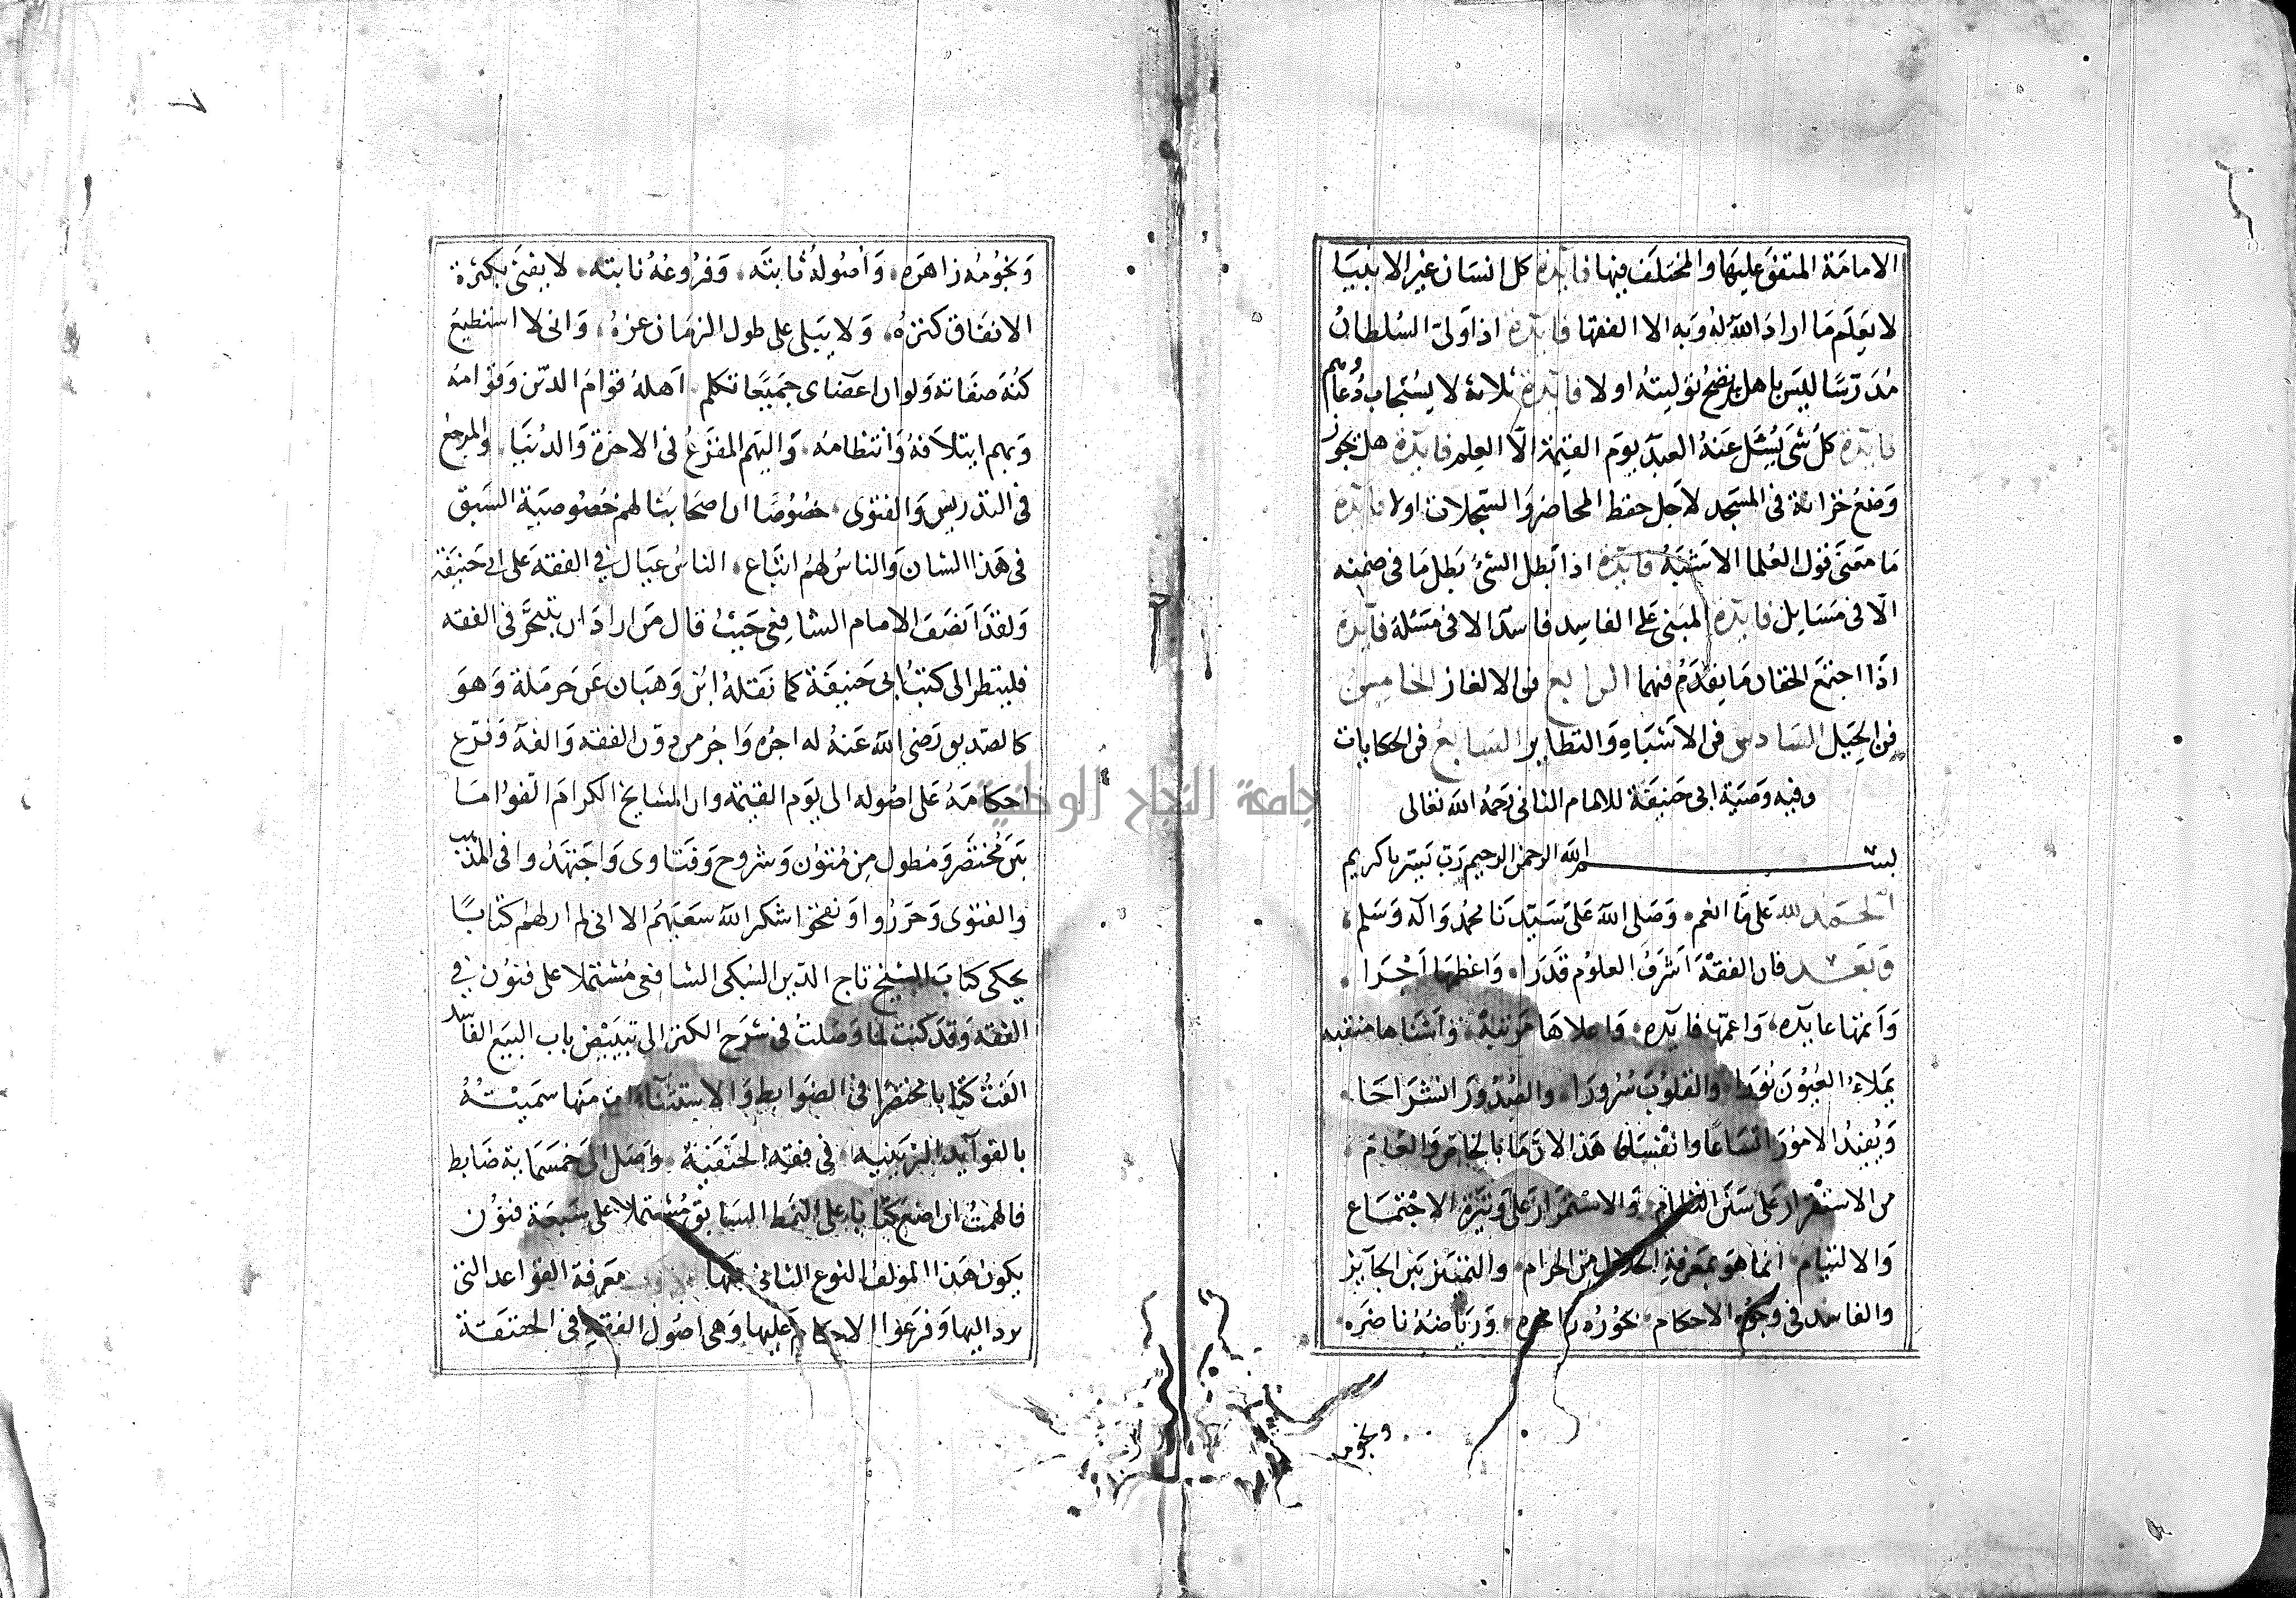 الامامة المتفق عليها والمختلف فيها فايدة كل انسان غير الانبيا
لا يعلم ما اراد الله له وبه الا الفقها فايدة اذا ولى السلطان
مدرسا ليس باهل يصح توليته او لا فايدة ثلاثة لا يستجاب دعاهم
فايدة كل شى يسئل عنه العبد يوم القيمة الا العلم فايدة هل يجوز
وضع خزانة فى المسجد لاجل حفظ المحاضر والسجلات او لا فايدة
ما معنى قول العلما الاشبه فايدة اذا بطل الشئ بطل ما فى ضمنه
الا فى مسايل فايدة المبنى على الفاسد فاسد الا فى مسئلة فايدة
اذا اجتمع الحقان ما يقدم منهما الرابع فن الالغاز الخامس
فن الحيل السادس فن الاشباه والنظاير السابع فن الحكايات
وفيه وصية ابى حنيفة للامام الثانى رحمه الله تعالى
بسم الله الرحمن الرحيم رب يسر يا كريم
الحمد لله على ما انعم وصلى الله على سيدنا محمد واله وسلم
وبعد فان الفقه اشرف العلوم قدرا واعظمها اجرا
واتمها عايده واعمها فايده واعلاها مرتبة واسناها منقبه
يملاء العيون نورا والقلوب سرورا والصدور انشراحا
ويفيد الامور اتساعا وانفتاحا هذا لان ما بالخاص والعام
من الاستقرار على سنن النظام والاستمرار على وتيرة الاجتماع
والالتيام انما هو بمعرفة الحلال من الحرام والتمييز بين الجايز
والفاسد فى وجوه الاحكام بحوره زاخره ورياضه ناضره
ونجومه
ونجومه زاهره واصوله ثابته وفروعه نابته لا يفنى بكثرة
الانفاق كنزه ولا يبلى على طول الزمان عزه وانى لا استطيع
كنه صفاته ولو ان اعضاى جميعا تكلم اهله قوام الدين وقوامه
وبهم ايتلافه وانتظامه واليهم المفزع فى الاخرة والدنيا والمرجع
فى التدريس والفتوى خصوصا ان اصحابنا لهم خصوصية السبق
فى هذا الشان والناس لهم اتباع الناس عيال فى الفقه على ابى حنيفة
ولقد انصف الامام الشافعى حيث قال من اراد ان يتبحر فى الفقه
فلينظر الى كتب ابى حنيفة كما نقله ابن وهبان عن حرملة وهو
كالصديق رضى الله عنه له اجره واجر من دون الفقه والفه وفرع
احكامه على اصوله الى يوم القيمة وان المشايخ الكرام الفوا ما
بين مختصر ومطول من متون وشروح وفتاوى واجتهدوا فى المذهب
والفتوى وحرروا ونقحوا شكر الله سعيهم الا انى لم ار لهم كتابا
يحكى كتاب الشيخ تاج الدين السبكى الشافعى مشتملا على فنون فى
الفقه وقد كنت لما وصلت فى شرح الكنز الى تبييض باب البيع الفاسد
الفت كتابا مختصرا فى الضوابط والاستثناات منها سميته
بالفوايد الزينيه فى فقه الحنفية وصل الى خمسماية ضابط
فالهمت ان اضع كتابا على النمط السابق مشتملا على سبعة فنون
يكون هذا المولف النوع الثانى منها معرفة القواعد التى
اليها وفرعوا الاحكام عليها وهى اصول الفقه فى الحقيقة
جامعة النجاح الوطنية